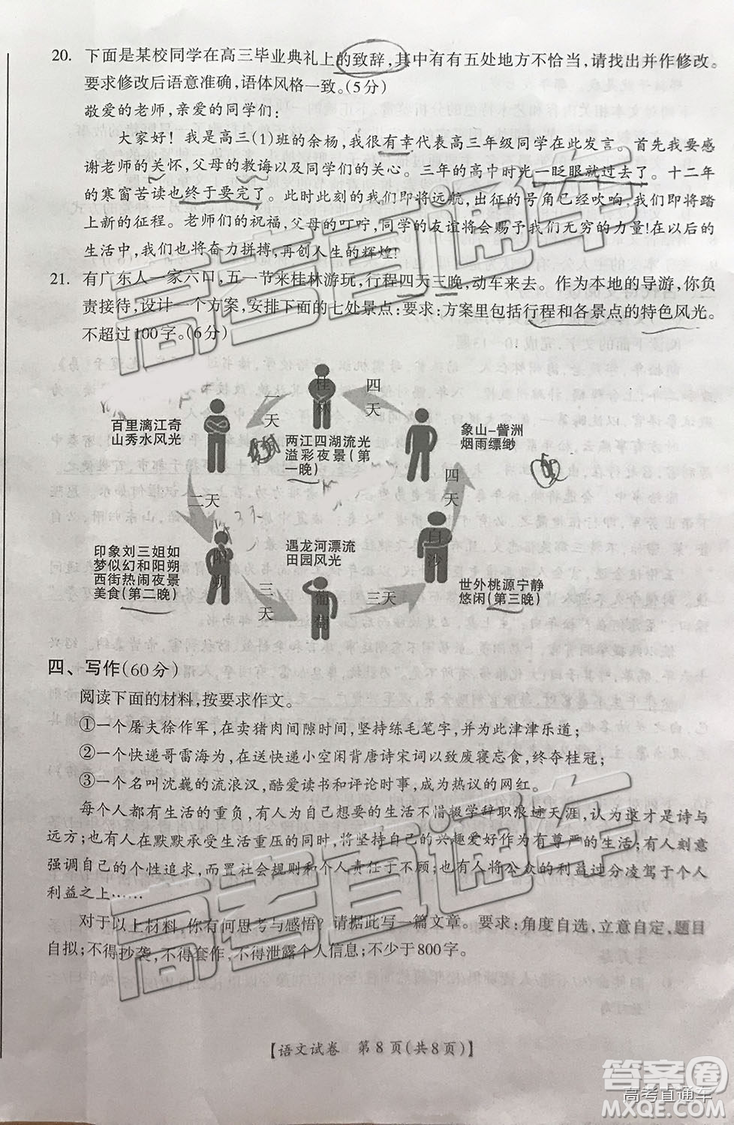 20. 下面是某校同学在高三毕业典礼上的致辞,其中有有五处地方不恰当,请找出并作修改。
要求修改后语意准确,语体风格一致。(5分)
敬爱的老师,亲爱的同学们:
大家好!我是高三(1)班的余杨,我很有幸代表高三年级同学在此发言。首先我要感
谢老师的关怀,父母的教诲以及同学们的关心。三年的高中时光一眨眼就过去了。十二年
的寒窗苦读也终于要完了。此时此刻的我们即将远航,出征的号角已经吹响,我们即将踏
上新的征程。老师们的祝福,父母的叮咛,同学的友谊将会赐予我们无穷的力量!在以后的
生活中,我们将奋力拼搏,再创人生的辉煌!
21. 有广东人一家六口,五一节来桂林游玩,行程四天三晚,动车来去。作为本地的导游,你负
责接待,设计一个方案,安排下面的七处景点:要求:方案里包括行程和各景点的特色风光。
不超过100字。(6分)
桂林
一天
四天
百里漓江奇
山秀水风光
两江四湖流光
溢彩夜景(第
一晚)
象山-訾洲
烟雨缥缈
二天
四天
印象刘三姐如
梦似幻和阳朔
西街热闹夜景
美食(第二晚)
阳朔
遇龙河漂流
田园风光
白沙
三天
三天
世外桃源宁静
悠闲(第三晚)
四、写作(60分)
阅读下面的材料,按要求作文。
①一个屠夫徐作军,在卖猪肉间隙时间,坚持练毛笔字,并为此津津乐道;
②一个快递哥雷海为,在送快递小空闲背唐诗宋词以致废寝忘食,终夺桂冠;
③一个名叫沈巍的流浪汉,酷爱读书和评论时事,成为炙手可热的网红。
每个人都有生活的重负,有人为自己想要的生活不惜辍学辞职浪迹天涯,认为这才是诗与
远方;也有人在默默承受生活重压的同时,将坚持自己的兴趣爱好作为有尊严的生活;有人刻意
强调自己的个性追求,而置社会规则和个人责任于不顾;也有人将公众的利益过分凌驾于个人
利益之上……
对于以上材料,你有何思考与感悟?请据此写一篇文章。要求:角度自选,立意自定,题目
自拟;不得抄袭,不得套作,不得泄露个人信息;不少于800字。
【语文试卷 第8页(共8页)】
高考直通车
高考直通车
答案圈
高考直通车
MXQE.COM